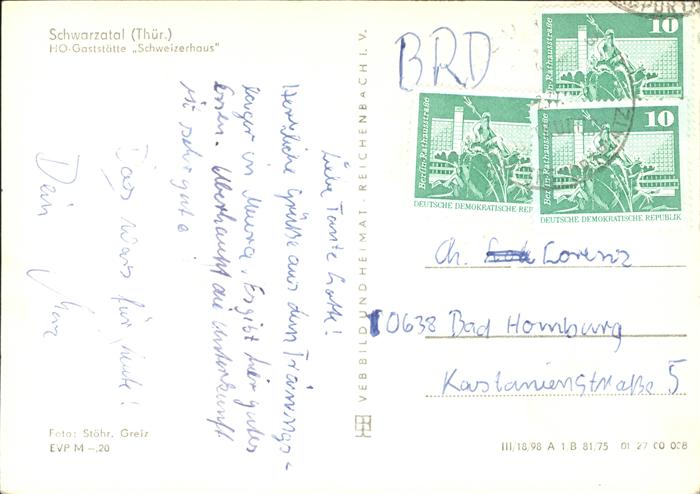 Schwarzatal (Thür.)
HO-Gaststätte „Schweizerhaus"
Liebe Tante Lotte!
Herzliche Grüße aus dem Trainings-
lager in Mura. Es gibt hier gutes
Essen. Überhaupt die Unterkunft
ist sehr gut
Das wars für heute!
Dein
Foto: Stöhr, Greiz
EVP M –,20
VEB BILD UND HEIMAT · REICHENBACH I. V.
BRD
10
Berlin-Rathausstraße
Berlin-Rathausstraße
10
Berlin-Rathausstraße
DEUTSCHE DEMOKRATISCHE REP
DEUTSCHE DEMOKRATISCHE REPUBLIK
Ch. Lorenz
0638 Bad Homburg
Kastanienstraße 5
III/18/98 A 1 B 81/75 01 27 00 008